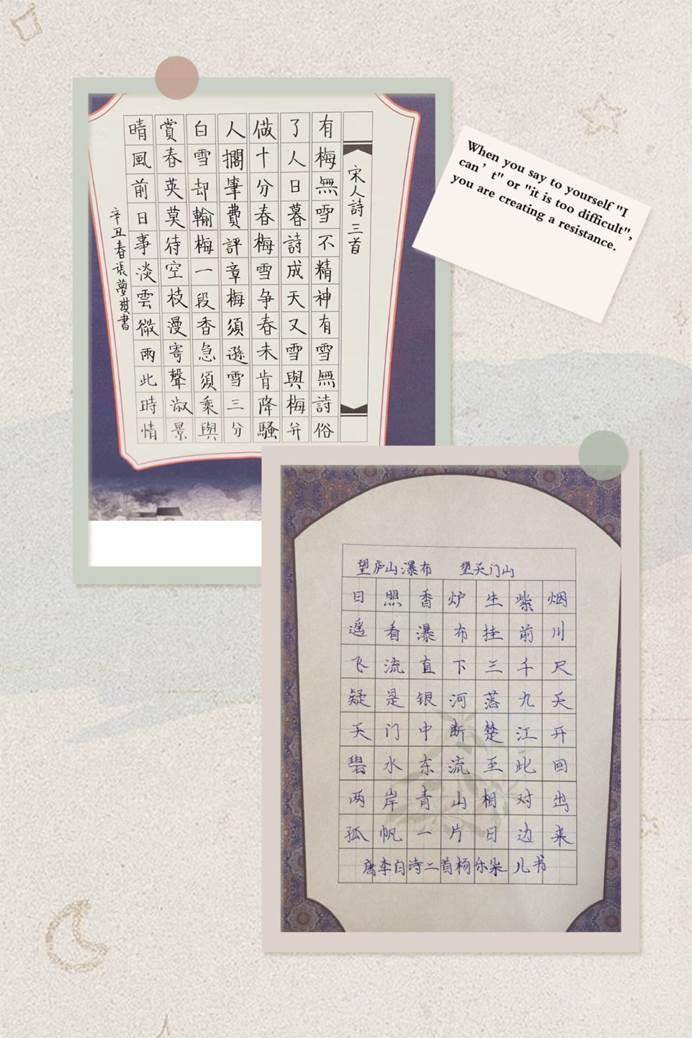 宋人詩三首
有梅無雪不精神有雪無詩俗
了人日暮詩成天又雪與梅并
做十分春梅雪争春未肯降騷
人擱筆費評章梅須遜雪三分
白雪却輸梅一段香急須乘興
賞春英莫待空枝漫寄聲淑景
晴風前日事淡雲微雨此時情
辛丑春張夢琪書
When you say to yourself "I
can’t" or "it is too difficult",
you are creating a resistance.
望庐山瀑布 望天门山
日照香炉生紫烟
遥看瀑布挂前川
飞流直下三千尺
疑是银河落九天
天门中断楚江开
碧水东流至此回
两岸青山相对出
孤帆一片日边来
唐李白诗二首杨尔 儿书